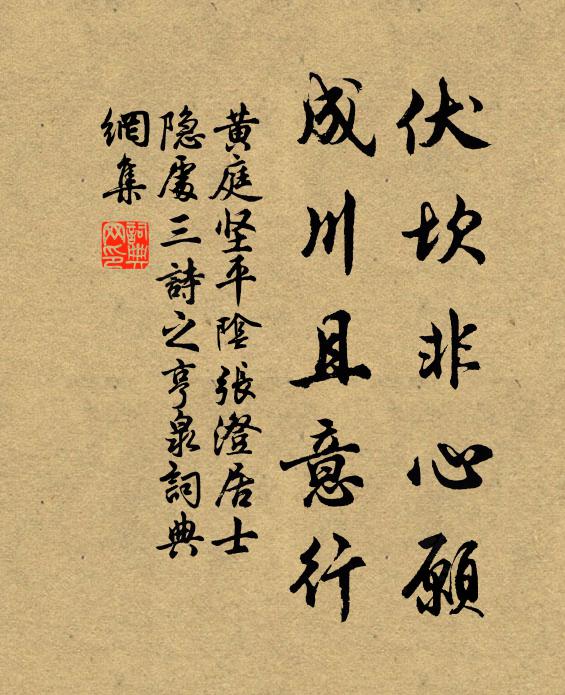 伏坎非心願
成川且意行
黄庭坚平陰張澄居士
隐處三詩之亨泉詞典
網集
詞典
网印